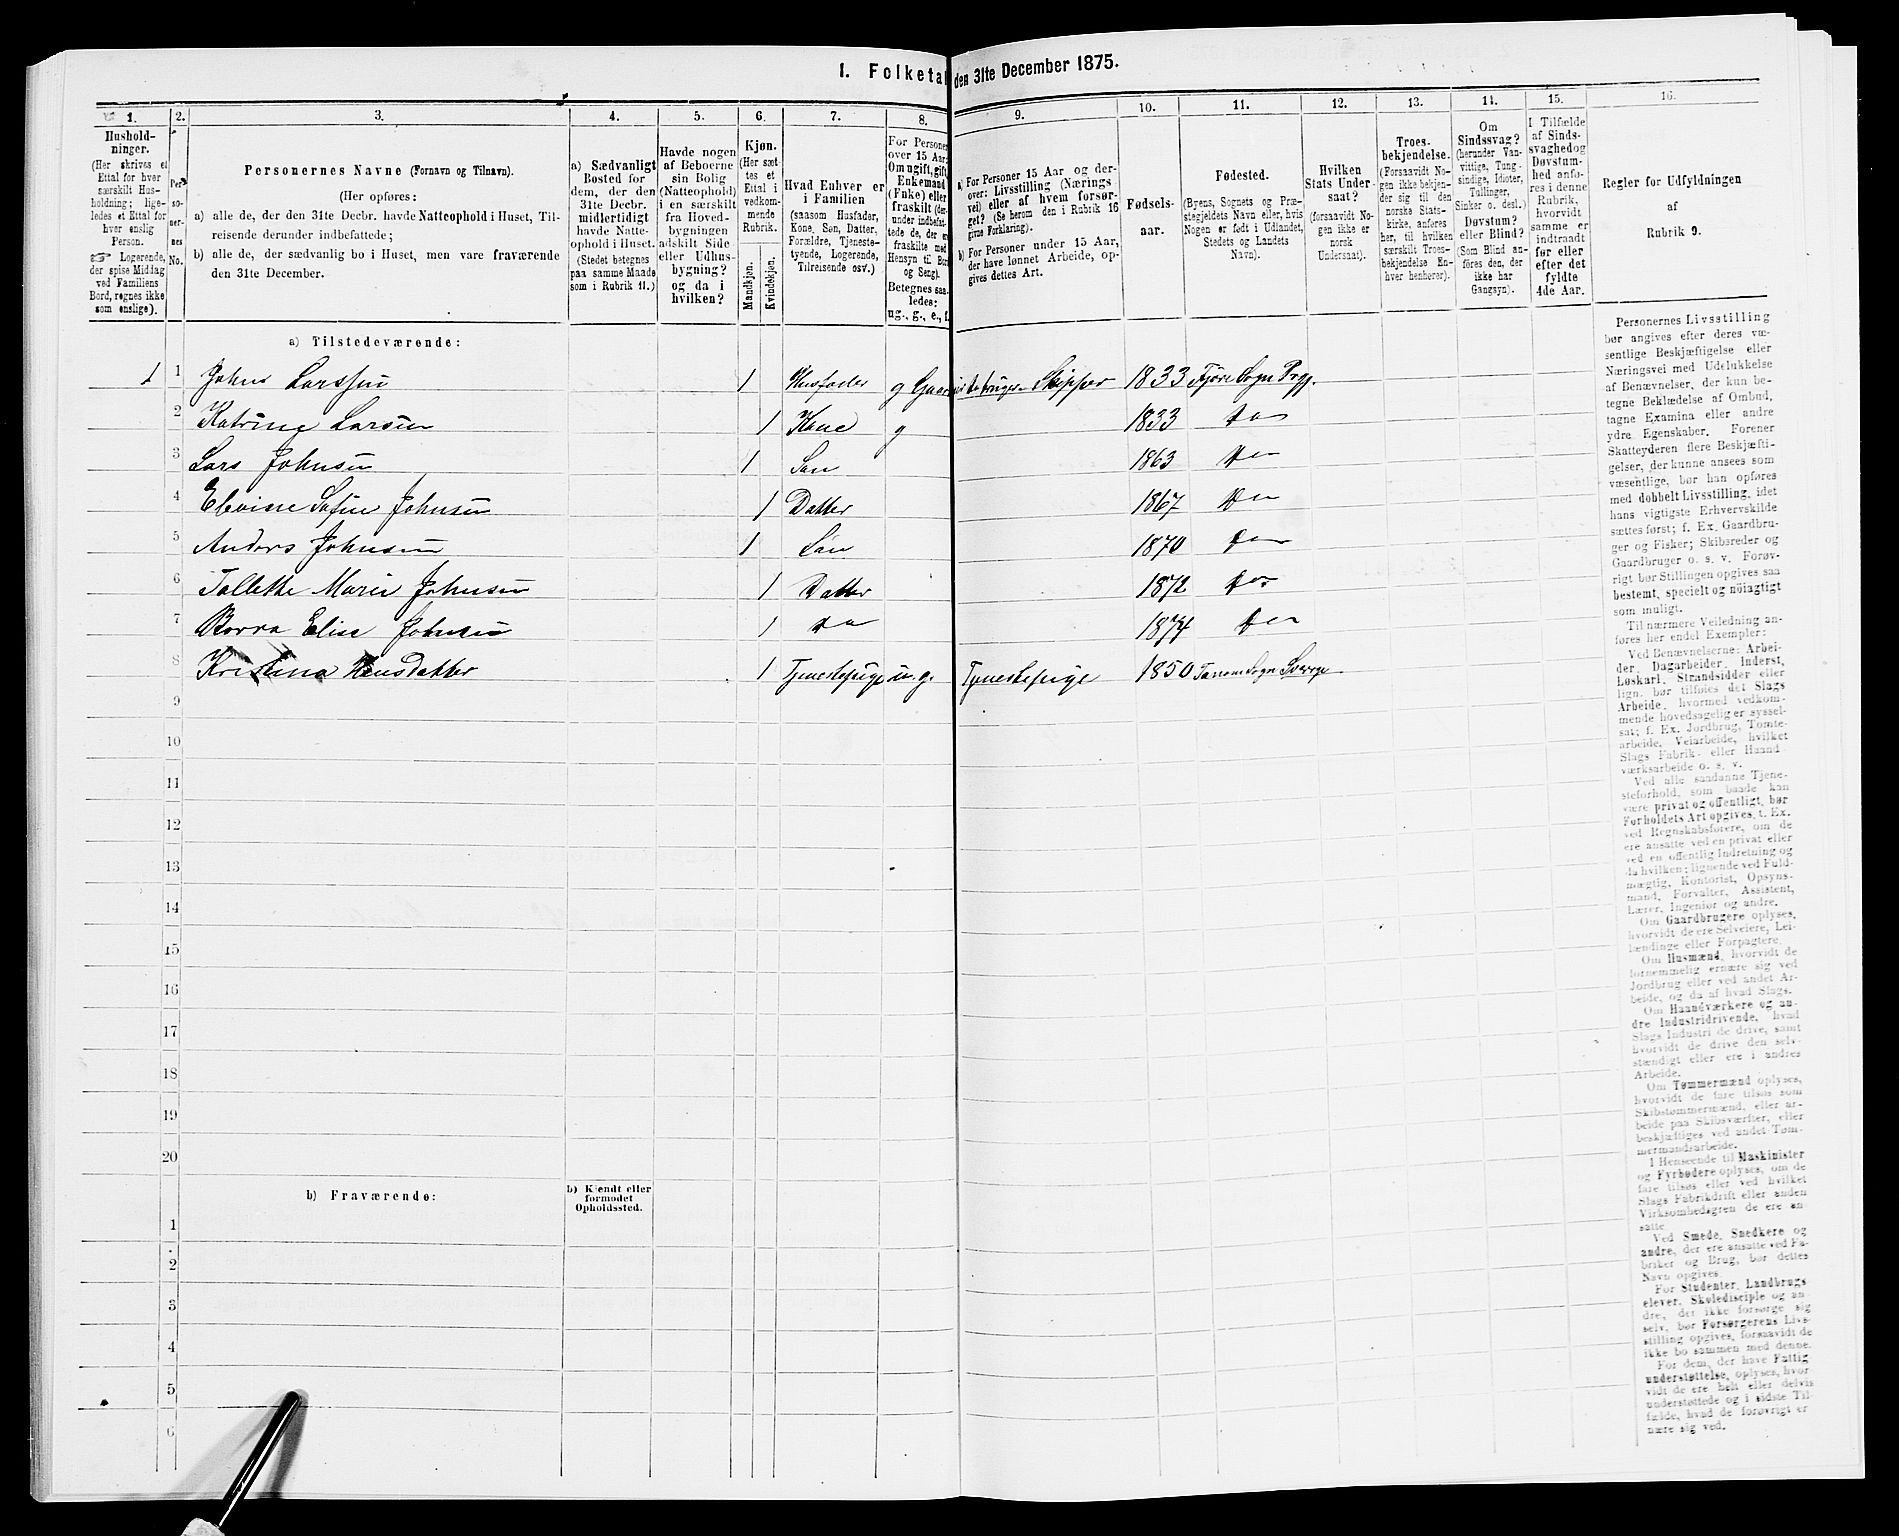 1. Folketal den 31te December 1875.
1. 2. 3. 4. 5. 6. 7. 8. 9. 10. 11. 12. 13. 14. 15. 16.
Hushold-
ninger.
(Her skrives et
Ettal for hver
særskilt Hus-
holdning; lige-
ledes et Ettal for
hver enslig
Person.
☞ Logerende,
der spise Middag
ved Familiens
Bord, regnes ikke
som enslige).
Per-
so-
ner-
nes
No.
Personernes Navne (Fornavn og Tilnavn).
(Her opføres:
a) alle de, der den 31te Decbr. havde Natteophold i Huset, Til-
reisende derunder indbefattede;
b) alle de, der sædvanlig bo i Huset, men vare fraværende
den 31te December.
a) Sædvanligt
Bosted for
dem, der den
31te Decbr.
midlertidigt
havde Natte-
ophold i Huset.
(Stedet betegnes
paa samme Maade
som i Rubrik 11.)
Havde nogen
af Beboerne
sin Bolig
(Natteophold)
i en særskilt
fra Hoved-
bygningen
adskilt Side-
eller Udhus-
bygning?
og da i
hvilken?
Kjøn.
(Her sæt-
tes et
Ettal i
vedkom-
mende
Rubrik.
Mandkjøn.
Kvindekjøn.
Hvad Enhver er
i Familien
(saasom Husfader,
Kone, Søn, Datter,
Forældre, Tjeneste-
tyende, Logerende,
Tilreisende osv.)
For Personer
over 15 Aar:
Om ugift, gift,
Enkemand
(Enke) eller
fraskilt (der-
under indbefat-
tede de, der ere
fraskilte med
Hensyn til Bord
og Seng).
Betegnes saa-
ledes:
ug., g., e., f.
a) For Personer 15 Aar og der-
over: Livsstilling (Nærings
vei) eller af hvem forsør-
get? (Se herom den i Rubrik 16
givne Forklaring).
b) For Personer under 15 Aar,
der have lønnet Arbeide, op-
gives dettes Art.
Fødsels-
aar.
Fødested.
(Byens, Sognets og Præ-
stegjeldets Navn eller, hvis
Nogen er født i Udlandet,
Stedets og Landets
Navn).
Hvilken
Stats Under-
saat?
(forsaavidt No-
gen ikke er
norsk
Undersaat).
Troes-
bekjendelse.
(Forsaavidt No-
gen ikke bekjen-
der sig til den
norske Stats-
kirke, anføres
her, til hvilken
særskilt Troes-
bekjendelse En-
hver henhører).
Om
Sindssvag?
(herunder Van-
vittige, Tung-
sindige, Idioter,
Tullinger,
Sinker o. desl.)
Døvstum?
eller Blind?
(Som Blind an-
føres den, der
ikke har
Gangsyn).
I Tilfælde
af Sinds-
svaghedog
Døvstum-
hed anfø-
res i denne
Rubrik,
hvorvidt
samme er
indtraadt
før eller
efter det
fyldte
4de Aar.
Regler for Udfyldningen
af
Rubrik 9.
a) Tilstedeværende:
1 1 Johns Larssen 1 Husfader g Gaardbruger Skipper 1833
2 Katrine Larsen 1 Kone g 1833 do
3 Lars Johnsen 1 Søn 1863 do
4 Johnsen 1 Datter 1867 do
5 Anders Johnsen 1 Søn 1870 do
6 Tallette Marie Johnsen 1 Datter 1872 do
7 Elise Johnsen 1 do 1874 do
8 Kristina Hansdatter 1 Tjenestepige u. g. Tjenestepige 1850
9
10
11
12
13
14
15
16
17
18
19
20
b) Fraværende:
b) Kjendt eller
formodet
Opholdssted.
1
2
3
4
5
6
Personernes Livsstilling
bør angives efter deres væ-
sentlige Beskjæftigelse eller
Næringsvei med Udelukkelse
af Benævnelser, der kun be-
tegne Beklædelse af Ombud,
tagne Examina eller andre
ydre Egenskaber. Forener
Skatteyderen flere Beskjæfti-
gelser, der kunne ansees som
væsentlige, bør han opføres
med dobbelt Livsstilling, idet
hans vigtigste Erhvervskilde
sættes først; f. Ex. Gaardbru-
ger og Fisker; Skibsreder og
Gaardbruger o. s. v. Forøv-
rigt bør Stillingen opgives saa
bestemt, specielt og nøiagtigt
som muligt.
Til nærmere Veiledning an-
føres her endel Exempler:
Ved Benævnelserne: Arbei-
der, Dagarbeider, Inderst,
Løskarl, Strandsidder eller
lign. bør tilføies det Slags
Arbeide, hvormed vedkom-
mende hovedsagelig er syssel-
sat; f. Ex. Jordbrug, Tomte-
arbeide, Veiarbeide, hvilket
Slags Fabrik- eller Haand-
værksarbeide o. s. v.
Ved alle saadanne Tjene-
steforhold, som baade kan
være privat og offentligt, bør
Forholdets Art opgives, f. Ex.
ved Regnskabsførere, om de
ere ansatte ved en privat eller
ved en offentlig Indretning og
da hvilken; lignende ved Fuld-
mægtig, Kontorist, Opsyns-
mand, Forvalter, Assistent,
Lærer, Ingeniør og andre.
Om Gaardbrugere oplyses,
hvorvidt de ere Selveiere, Lei-
lændinge eller Forpagtere.
Om Husmænd, hvorvidt de
fornemmelig ernære sig ved
Jordbrug eller ved andet Ar-
beide, og da af hvad Slags.
Om Haandværkere og an-
dre Industridrivende, hvad
Slags Industri de drive, samt
hvorvidt de drive den selv-
stændigt eller ere i andres
Arbeide.
Om Tømmermænd oplyses,
hvorvidt de fare tilsøs som
Skibstømmermænd, eller ar-
beide paa Skibsværfter, eller
beskjæftiges ved andet Tøm-
mermandsarbeide.
I Henseende til Maskinister
og Fyrbødere oplyses, om de
fare tilsøs eller ved hvilket
Slags Fabrikdrift eller anden
Virksomhedsgren de ere an-
satte.
Ved Smede, Snedkere og
andre, der ere ansatte ved Fa-
briker og Brug, bør dettes
Navn opgives.
For Studenter, Landbrugs-
elever, Skoledisciple og an-
dre, der ikke forsørge sig
selv, bør Forsørgerens Livs-
stilling opgives, forsaavidt de
ikke bo sammen med denne.
For dem, der have Fattig-
understøttelse, oplyses, hvor-
vidt de ere helt eller delvis
understøttede og i sidste Til-
fælde, hvad de forøvrigt er-
nære sig ved.